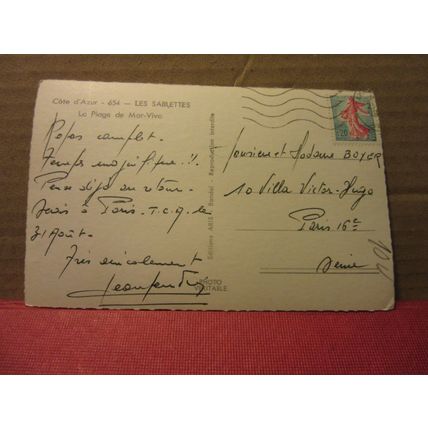 Côte d'Azur - 654 - LES SABLETTES
La Plage de Mar-Vivo
Repos complet.
Temps magnifique.!!
Pense déjà au retour.
Serai à Paris. T.C.A. le
31 Août.
Très amicalement
Editions Aris Bandol. Reproduction interdite
PHOTO
VÉRITABLE
0,20
Monsieur et Madame BOYER
10 Villa Victor-Hugo
Paris 16e
Seine